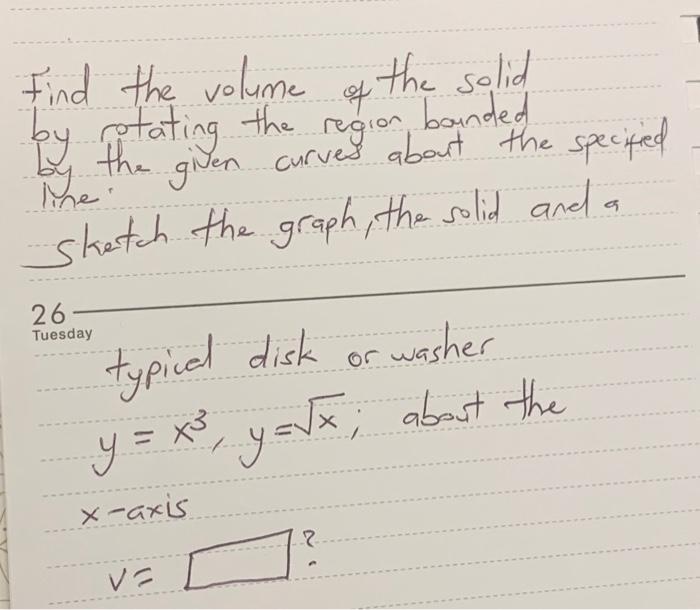 Find the volume of the solid
by rotating the region bounded
by the given curves about the specified
line.
sketch the graph, the solid and a
26
Tuesday
typical disk or washer
y = x³, y=√x; about the
x-axis
V= ?